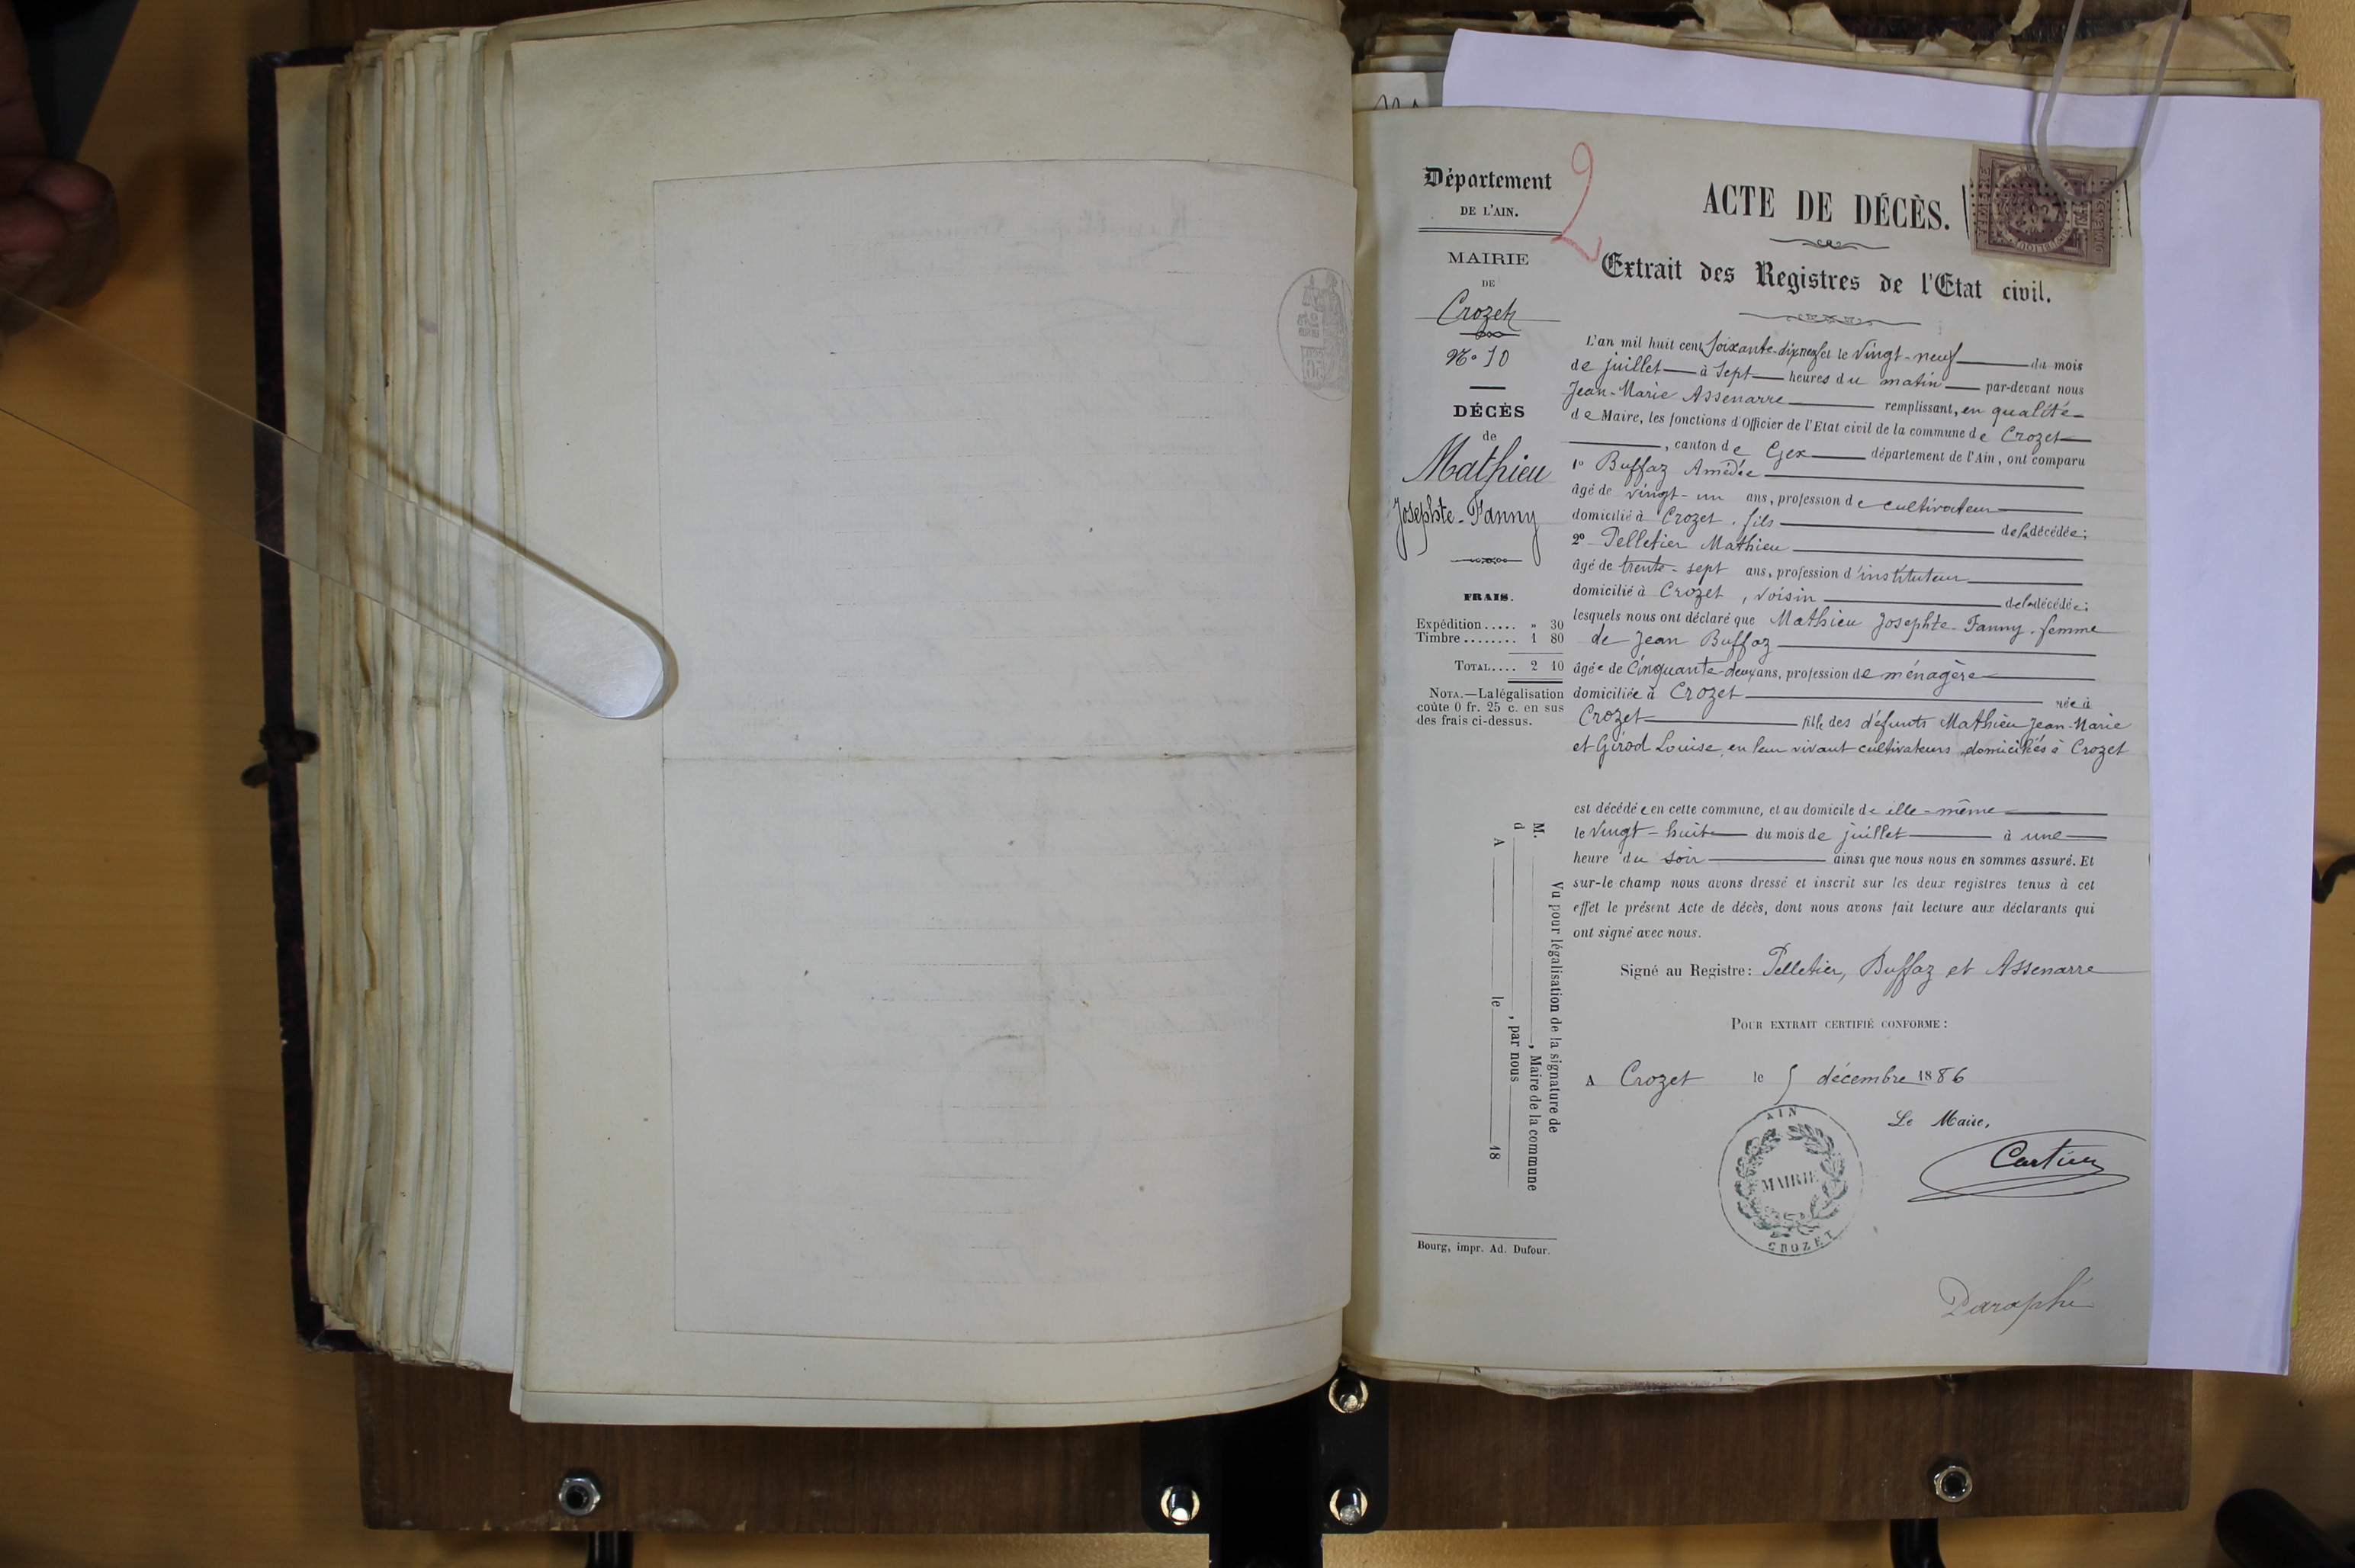 Département
DE L'AIN.
MAIRIE
DE
Crozet
N° 10
DÉCÈS
de
Mathieu
Josephte-Fanny
FRAIS.
Expédition..... » 30
Timbre........ 1 80
TOTAL.... 2 10
NOTA.—La légalisation
coûte 0 fr. 25 c. en sus
des frais ci-dessus.
Vu pour légalisation de la signature de
M. , Maire de la commune
d , par nous
A le 18
Bourg, impr. Ad. Dufour.
2
ACTE DE DÉCÈS.
Extrait des Registres de l'Etat civil.
L'an mil huit cent soixante-dix-neuf et le vingt-neuf du mois
de juillet à sept heures du matin par-devant nous
Jean-Marie Assenarre remplissant, en qualité
de Maire, les fonctions d'Officier de l'Etat civil de la commune de Crozet
, canton de Gex département de l'Ain, ont comparu
1° Buffaz Amédée
âgé de vingt-un ans, profession de cultivateur
domicilié à Crozet, fils de la décédée;
2° Pelletier Mathieu
âgé de trente-sept ans, profession d'instituteur
domicilié à Crozet, voisin de la décédée;
lesquels nous ont déclaré que Mathieu Josephte-Fanny, femme
de Jean Buffaz
âgée de cinquante-deux ans, profession de ménagère
domiciliée à Crozet née à
Crozet fille des défunts Mathieu Jean-Marie
et Girod Louise, en leur vivant cultivateurs domiciliés à Crozet
est décédée en cette commune, et au domicile de elle-même
le vingt-huit du mois de juillet à une
heure du soir ainsi que nous nous en sommes assuré. Et
sur-le champ nous avons dressé et inscrit sur les deux registres tenus à cet
effet le présent Acte de décès, dont nous avons fait lecture aux déclarants qui
ont signé avec nous.
Signé au Registre: Pelletier, Buffaz et Assenarre
POUR EXTRAIT CERTIFIÉ CONFORME:
A Crozet le 5 décembre 1886
Le Maire,
Cartier
AIN
MAIRIE
CROZET
Paraphé